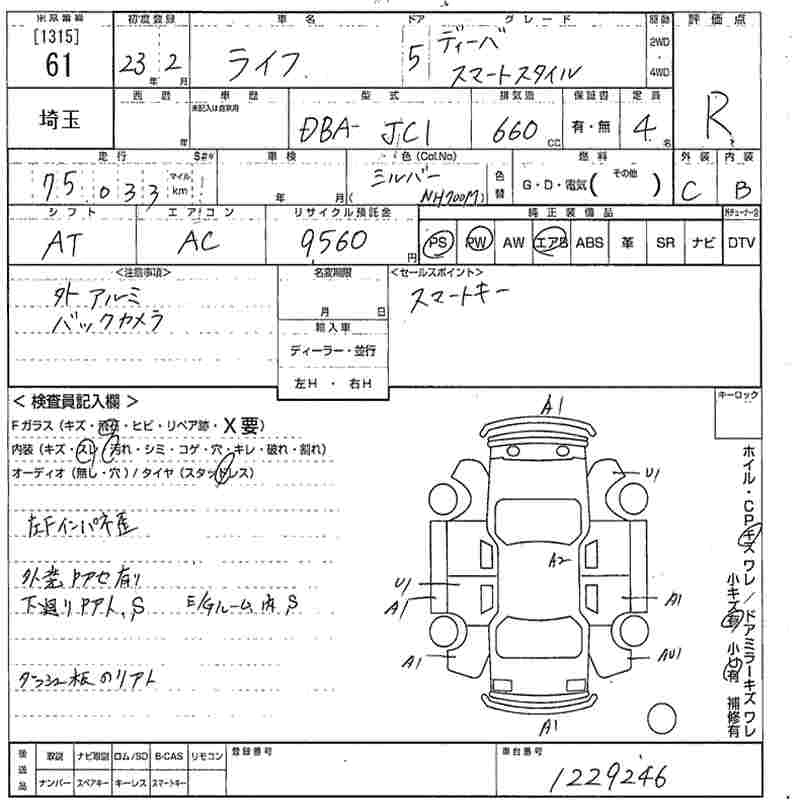 東京番線 初度登録 車名 ドア グレード 駆動 評価点
[1315]
61 23年 2月 ライフ 5 ディーバ スマートスタイル 2WD・4WD R
埼玉 西暦 年 車歴 型式 排気量 保証書 定員
未記入は自家用
DBA- JC1 660 CC 有・無 4名
走行 S#* 車検 色(Col.No) 燃料 外装 内装
75,033 マイル km 年 月 シルバー (NH700M) 色替 G・D・電気( その他 ) C B
シフト エアコン リサイクル預託金 純正装備品
AT AC 9560円 PS PW AW エアB ABS 革 SR ナビ DTV
<注意事項> 名変期限 <セールスポイント>
外 アルミ スマートキー
バックカメラ 月 日
輸入車
ディーラー・並行
左H ・ 右H
< 検査員記入欄 > キーロック
Fガラス (キズ・飛石・ヒビ・リペア跡・X要)
内装 (キズ・スレ・汚れ・シミ・コゲ・穴・キレ・破れ・割れ)
オーディオ (無し・穴) / タイヤ (スタッドレス)
左Fインパネ歪
外装 Pアセ有り
下廻りPアト、S E/Gルーム内 S
ダッシュ板のリアト
A1
U1
A2
U1
A1
A1
A1
AU1
A1
ホイル・CPキズ ワレ / ドアミラーキズ ワレ
小キズ有 小凹有 補修有
後送品 取説 ナビ取説 ロム/SD B-CAS リモコン 登録番号 車台番号
ナンバー スペアキー キーレス スマートキー 1229246